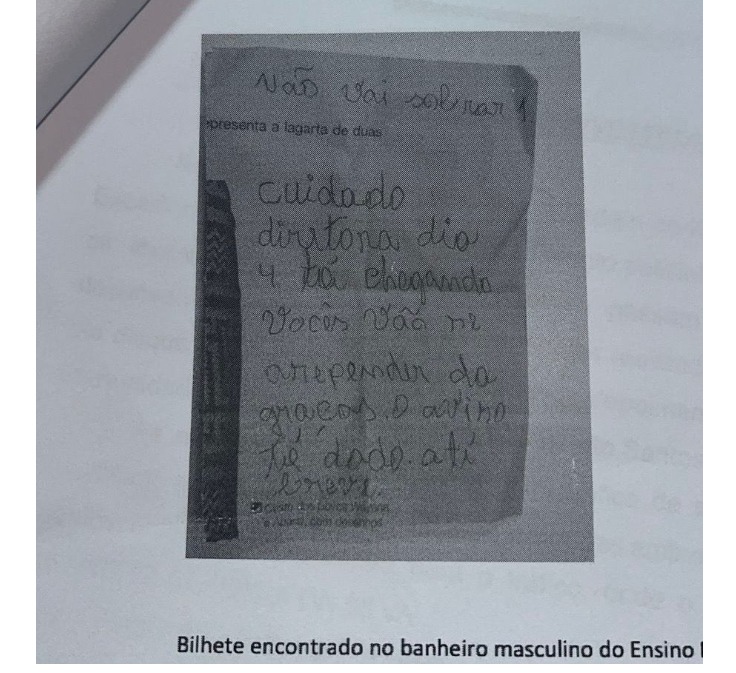 Não vai sobrar 1
epresenta a lagarta de duas
cuidado
diretora dia
4 tá chegando
vocês vão se
arepender da
graças. O aviso
té dado. até
breve.
e Abural, com desenhos
Bilhete encontrado no banheiro masculino do Ensino